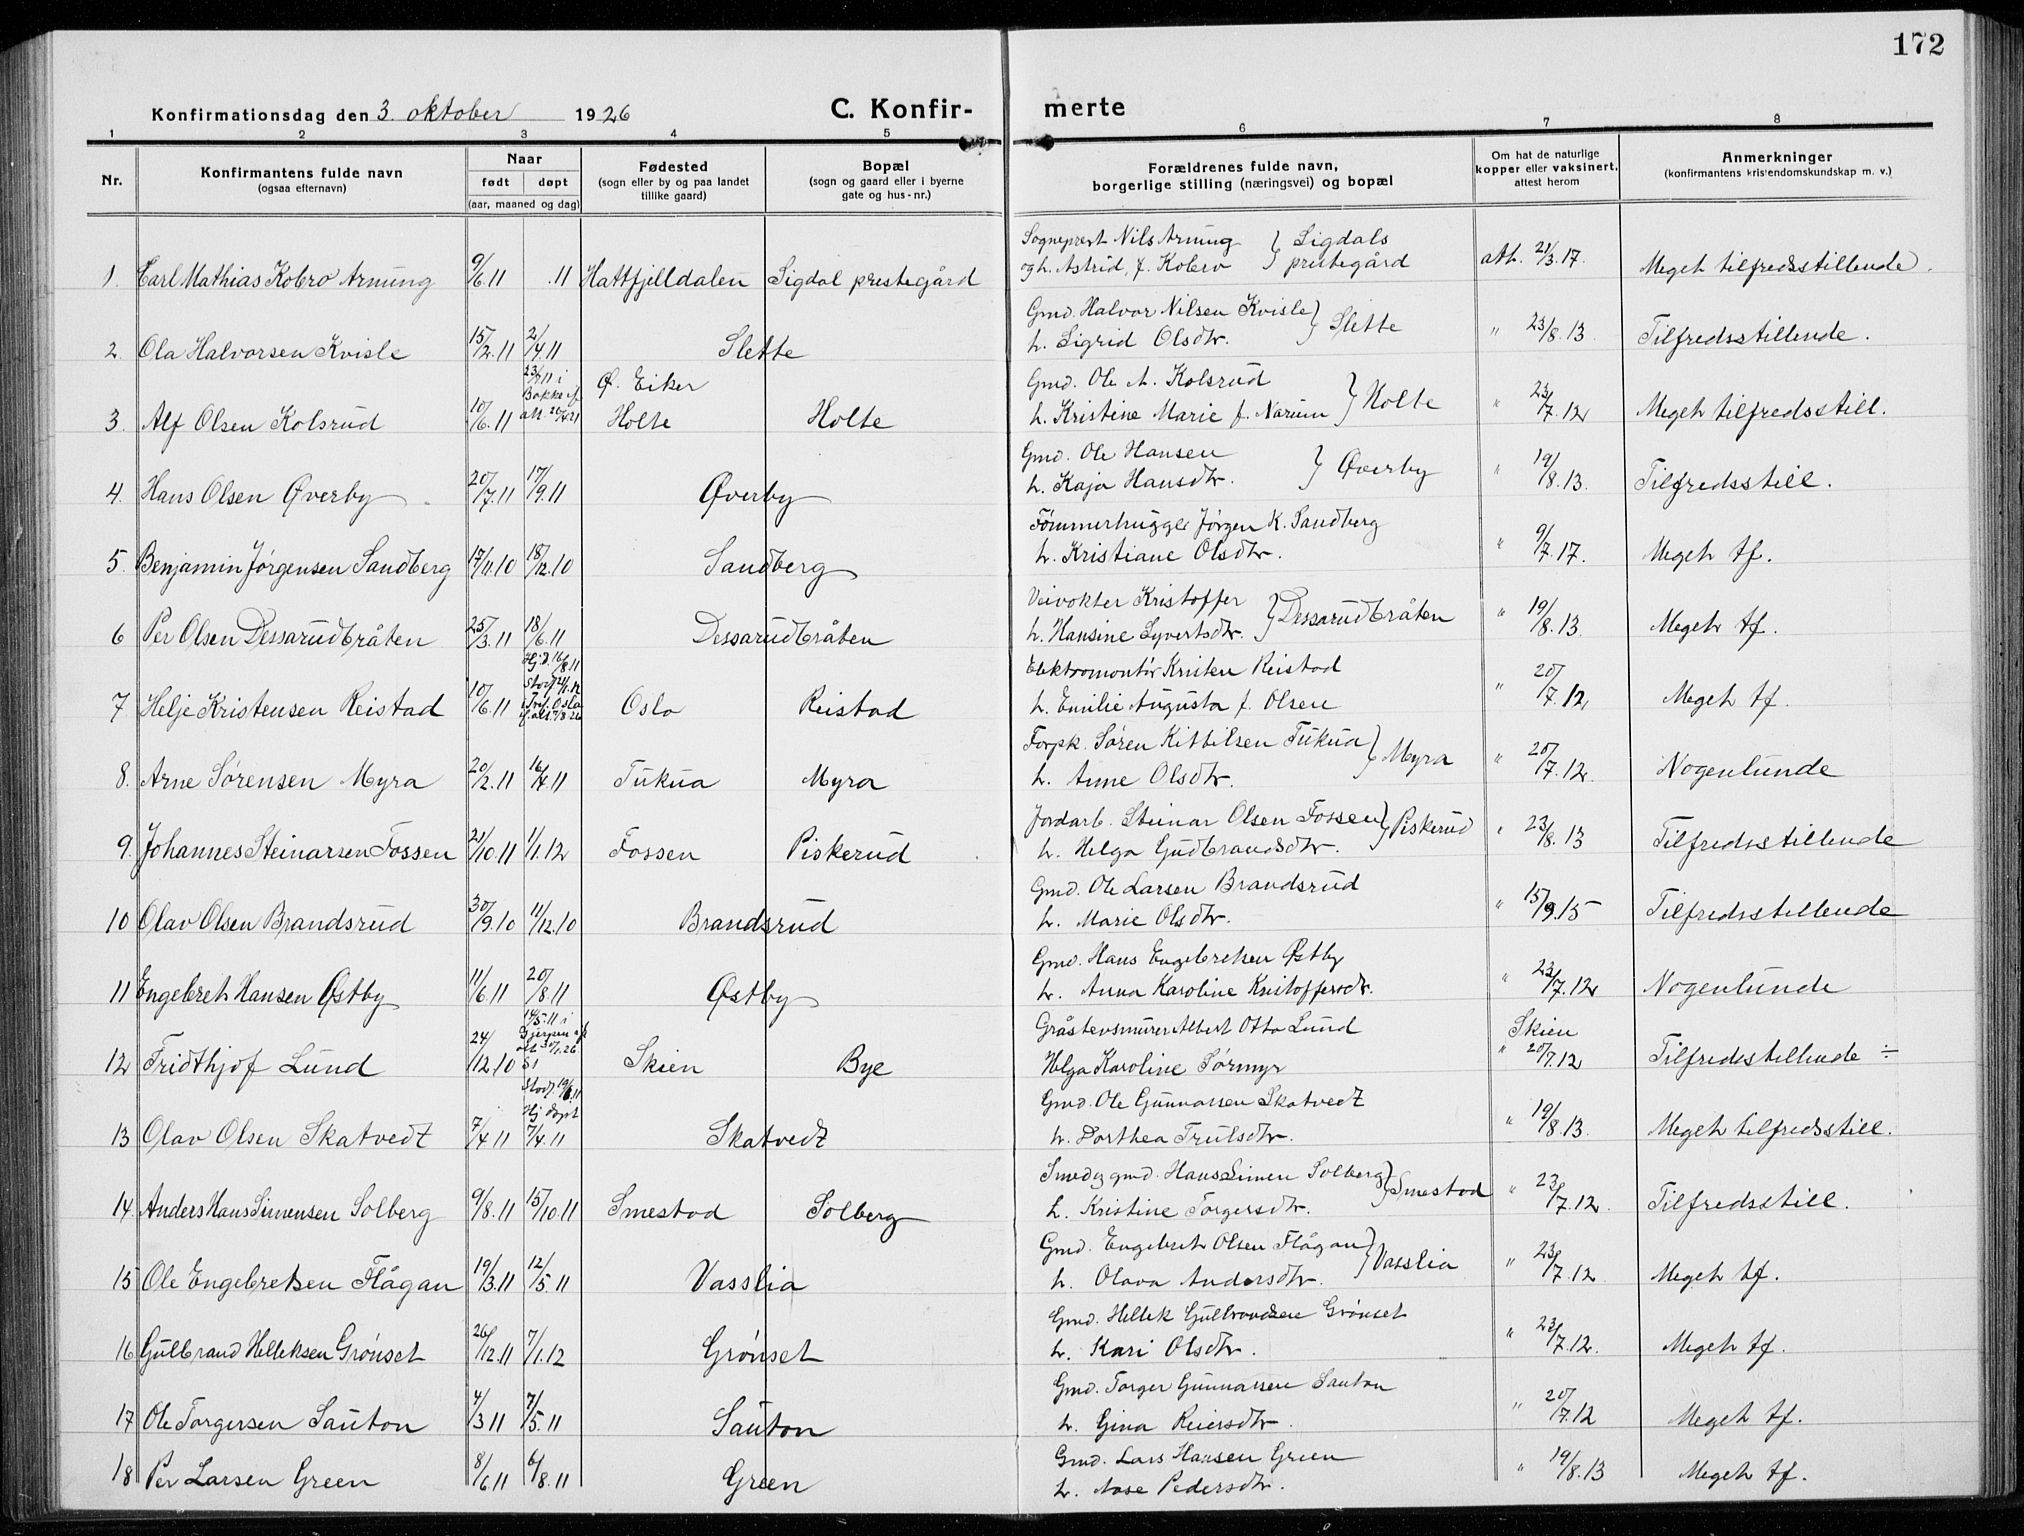 172
Konfirmationsdag den 3. oktober 1926 C. Konfir- merte
1 2 3 4 5 6 7 8
Nr. Konfirmantens fulde navn (ogsaa efternavn) Naar født døpt (aar, maaned og dag) Fødested (sogn eller by og paa landet tillike gaard) Bopæl (sogn og gaard eller i byerne gate og hus-nr.) Forældrenes fulde navn, borgerlige stilling (næringsvei) og bopæl Om hat de naturlige kopper eller vaksinert, attest herom Anmerkninger (konfirmantens kristendomskundskap m. v.)
1. Carl Mathias Kobro Arnung 9/6.11 .11 Hattfjelldalen Sigdal prestegård Sogneprest Nils Arnung og h. Astrid, f. Kobro } Sigdals prestegård att. 21/3.17. Meget tilfredsstillende.
2. Ola Halvorsen Kvisle 15/2.11 2/4.11 Slette Gmd. Halvor Nilsen Kvisle h. Sigrid Olsdtr. } Slette " 23/8.13. Tilfredsstillende.
3. Alf Olsen Kolsrud 10/6.11 23/7.11 i Bakke if. att. 20/4.21 Ø. Eiker Holte Holte Gmd. Ole A. Kolsrud h. Kristine Marie f. Narum } Holte " 23/7.12 Meget tilfredsstill.
4. Hans Olsen Øverby 20/7.11 17/9.11 Øverby Gmd. Ole Hansen h. Kaja Hansdtr. } Øverby " 19/8.13. Tilfredsstill.
5. Benjamin Jørgensen Sandberg 17/11.10 18/12.10 Sandberg Tømmerhugger Jørgen K. Sandberg h. Kristiane Olsdtr. " 9/7.17. Meget tf.
6 Per Olsen Dessarudbråten 25/3.11 18/6.11 Dessarudbråten Veivokter Kristoffer h. Hansine Syvertsdtr. } Dessarudbråten " 19/8.13. Meget tf.
7 Helje Kristensen Reistad 10/6.11 Hj.d. 16/8.11 Stadf. Oslo Oslo Reistad Elektromontør Kristen Reistad h. Emilie Augusta f. Olsen " 20/7.12, Meget tf.
8. Arne Sørensen Myra 20/2.11 16/4.11 Tukua Myra Forpk. Søren Kittilsen Tukua h. Anne Olsdtr. } Myra " 20/7.12. Nogenlunde
9. Johannes Steinarsen Fossen 21/10.11 1/1.12 Fossen Piskerud Jordarb. Steinar Olsen Fossen h. Helga Gudbrandsdtr. } Piskerud " 23/8.13 Tilfredsstillende
10 Olav Olsen Brandsrud 30/9.10 11/12.10 Brandsrud Gmd. Ole Larsen Brandsrud h. Marie Olsdtr. " 15/9.15 Tilfredsstillende
11 Engebret Hansen Østby 11/6.11 20/8.11 Østby Gmd. Hans Engebretsen Østby h. Anna Karoline Kristoffersdtr. " 23/7.12 Nogenlunde
12 Fridthjof Lund 24/12.10 14/5.11 i Gjerpen if. att. 30/1.26 Skien Bye Gråstensmurer Albert Otto Lund Helga Karoline Sørmyr Skien " 20/7.12 Tilfredsstillende ÷
13 Olav Olsen Skatvedt 7/4.11 Stadf. 19/6.11 Hj døpt 7/4.11 Skatvedt Gmd. Ole Gunnarsen Skatvedt h. Dorthea Trulsdtr. " 19/8.13. Meget tilfredsstill.
14 Anders Hans Simensen Solberg 9/8.11 15/10.11 Smestad Solberg Smed og gmd. Hans Simen Solberg h. Kristine Torgersdtr. } Smestad " 23/7.12. Tilfredsstill.
15 Ole Engebretsen Flågan 19/3.11 12/5.11 Vasslia Gmd. Engebret Olsen Flågan h. Olava Andersdtr. } Vasslia " 23/7.12. Meget tf.
16 Gulbrand Helleksen Grønset 26/12.11 7/1.12 Grønset Gmd. Hellek Gulbrandsen Grønset h. Kari Olsdtr. " 23/7.12. Meget tf.
17 Ole Torgersen Sauton 4/3.11 7/5.11 Sauton Gmd. Torger Gunnarsen Sauton h. Gina Reiersdtr. " 20/7.12 Meget tf.
18 Per Larsen Green 8/6.11 6/8.11 Green Gmd. Lars Hansen Green h. Aase Pedersdtr. " 19/8.13 Meget tf.